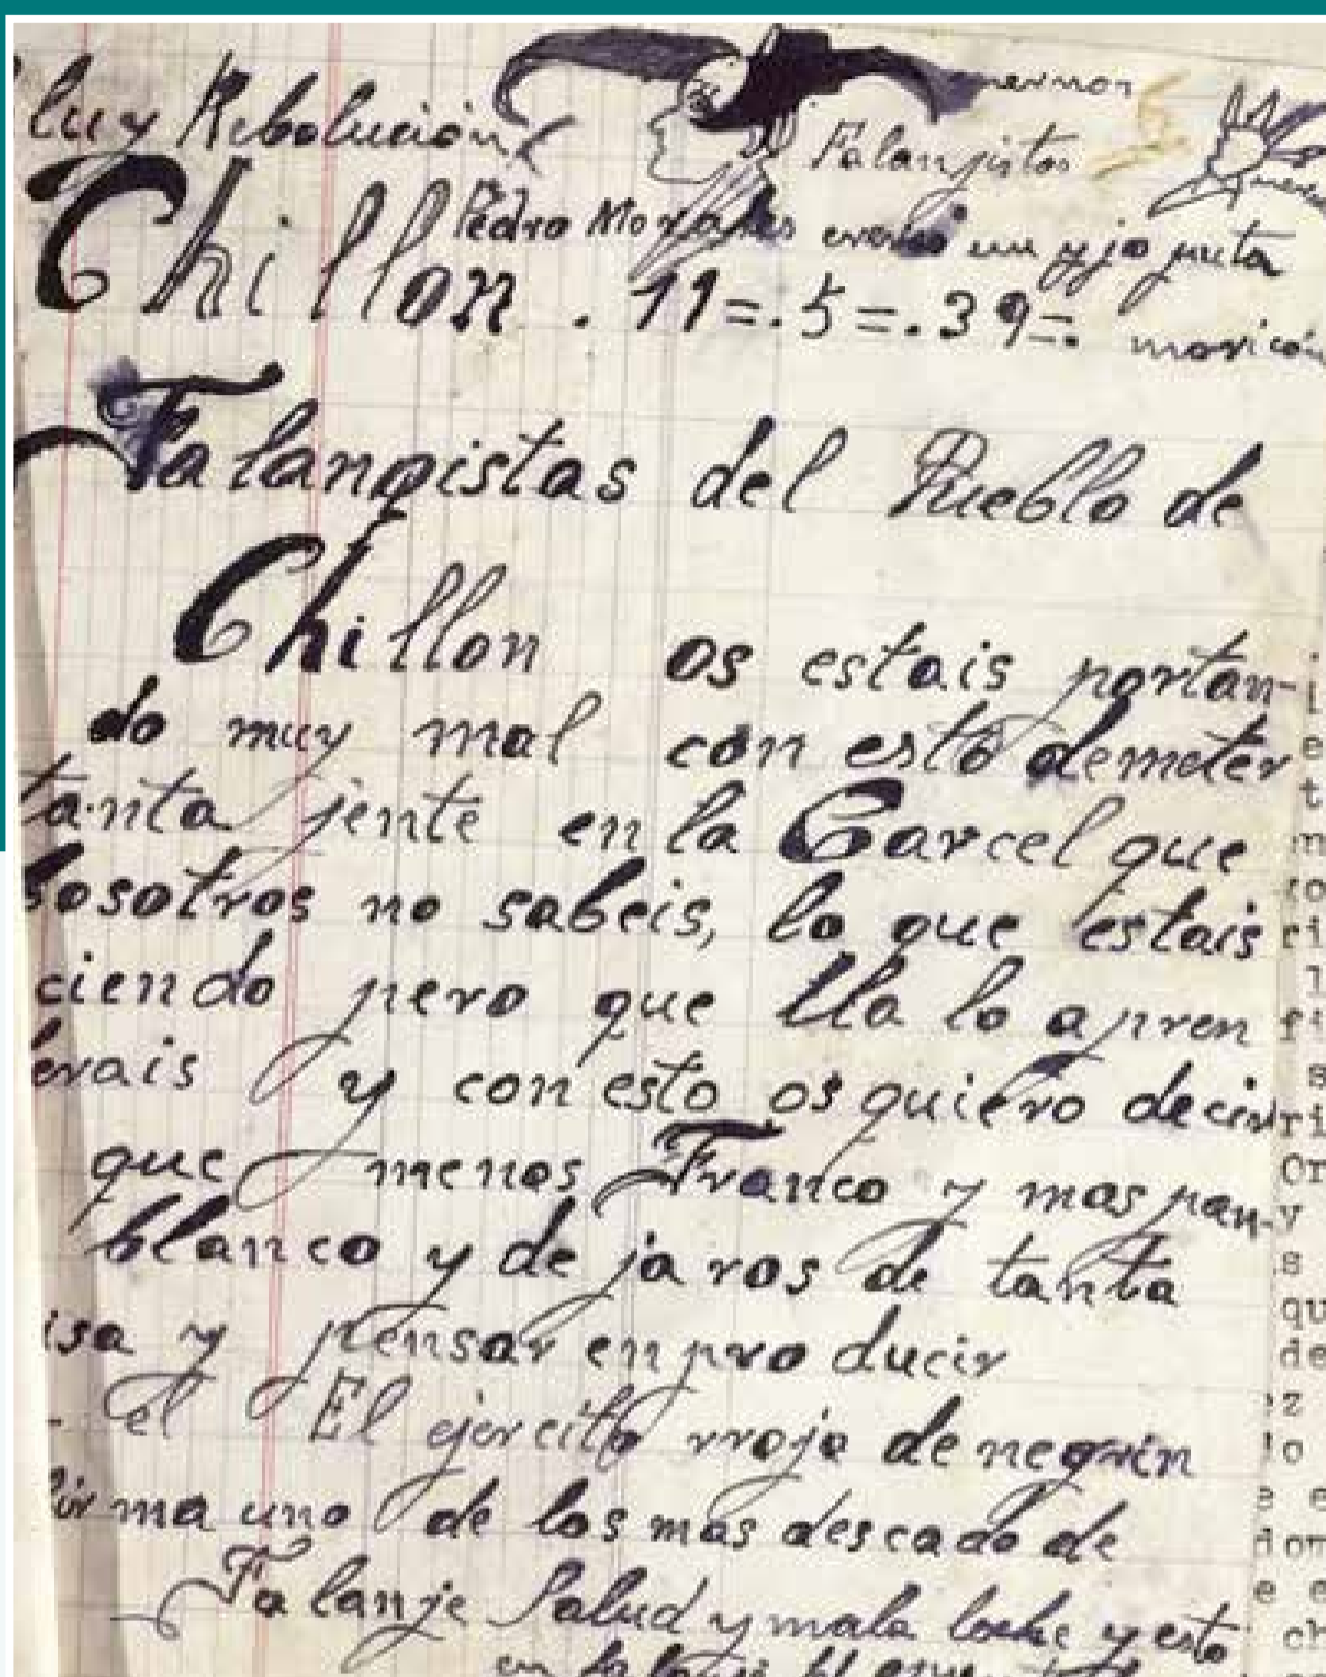 luy Ribolución
Falanjistos
Pedro Morales eres un yjo puta
Chillon . 11=.5=.39=.
moricón
Falangistas del Pueblo de
Chillon os estais portan-
do muy mal con esto demeter
tanta jente en la Carcel que
bosotros no sabeis, lo que estais
ciendo pero que lla lo apren
erais y con esto os quiero decir
que menos Franco y mas pan-
blanco y de jaros de tanta
isa y pensar en pro ducir
el El ejercito rrojo de negrin
firma uno de los mas descado de
Falanje Salud y mala leche y esto